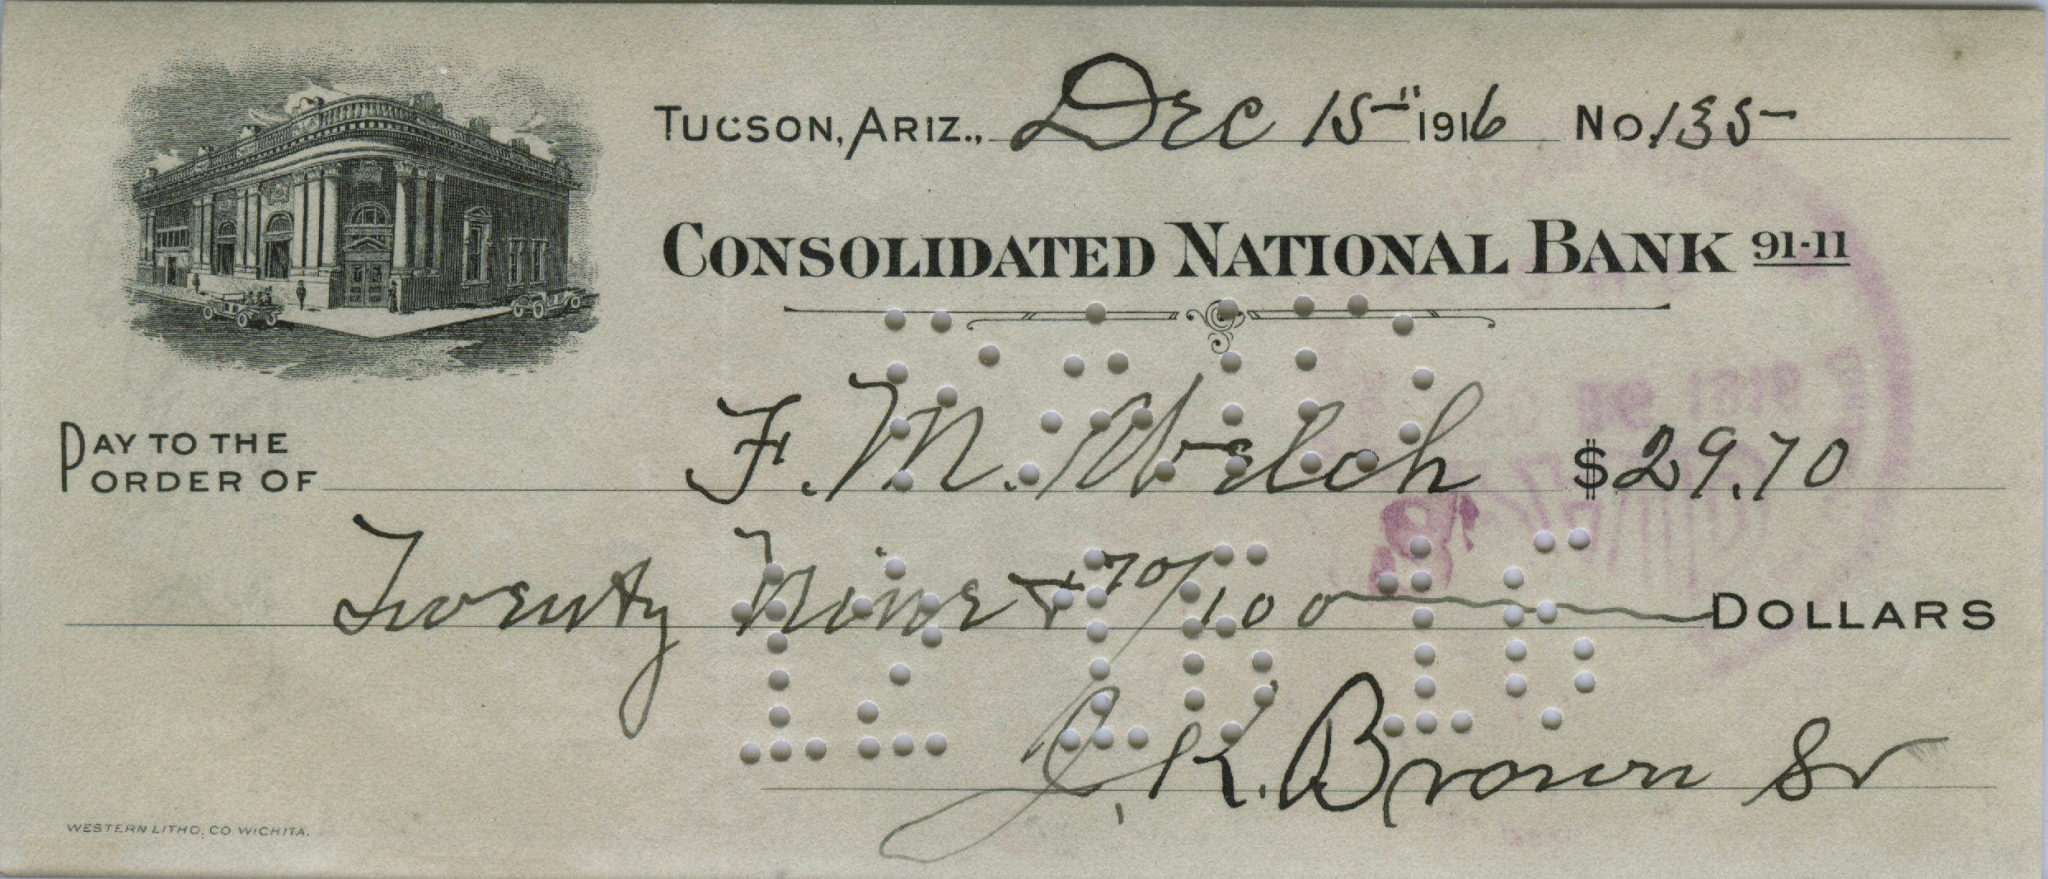 TUCSON, ARIZ., Dec 15" 1916 No. 135
CONSOLIDATED NATIONAL BANK 91-11
PAID
PAY TO THE
ORDER OF F. M. Welch $29.70
Twenty Nine & 70/100 DOLLARS
12 16 16
J. K. Brown Sr
WESTERN LITHO. CO. WICHITA.